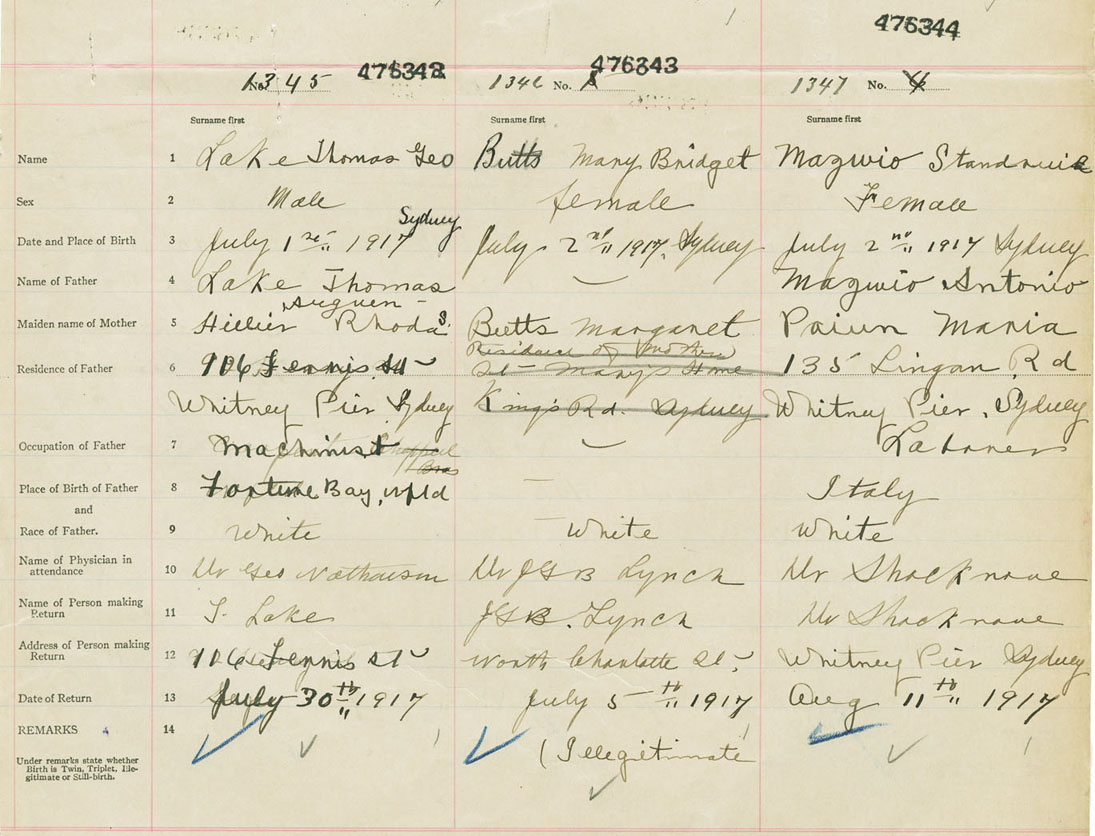 476344
476342 476343
No. 1345 1346 No. 1347 No. 4
Surname first Surname first Surname first
Name 1 Lake Thomas Geo Butts Mary Bridget Mazwio
Sex 2 Male female Female
Date and Place of Birth 3 July 1 st 1917 Sydney July 2 nd 1917, Sydney July 2 nd 1917 Sydney
Name of Father 4 Lake Thomas — Mazwio Antonio
Maiden name of Mother 5 Hillier Rhoda S. Butts Margaret Maria
Residence of
Residence of Father 6 St Mary's Home 135 Lingan Rd
Whitney Pier Sydney King's Rd. Sydney Whitney Pier, Sydney
Occupation of Father 7 Machinist — Laborer
Place of Birth of Father 8 Fortune Bay, Nfld — Italy
and
Race of Father. 9 White — White White
Name of Physician in
attendance 10 Dr Geo Dr JGB Lynch Dr
Name of Person making
Return 11 T. Lake JGB. Lynch Dr
Address of Person making
Return 12 St North Charlotte St. Whitney Pier Sydney
Date of Return 13 July 30 th 1917 July 5 th 1917 Aug 11 th 1917
REMARKS 14
(Illegitimate
Under remarks state whether
Birth is Twin, Triplet, Ille-
gitimate or Still-birth.